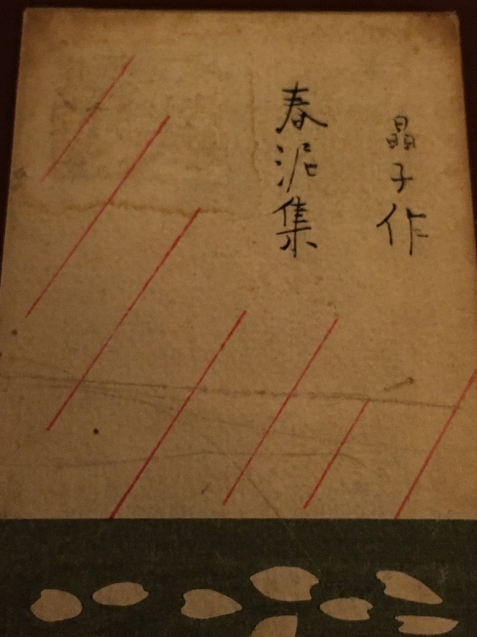 晶子作
春泥集